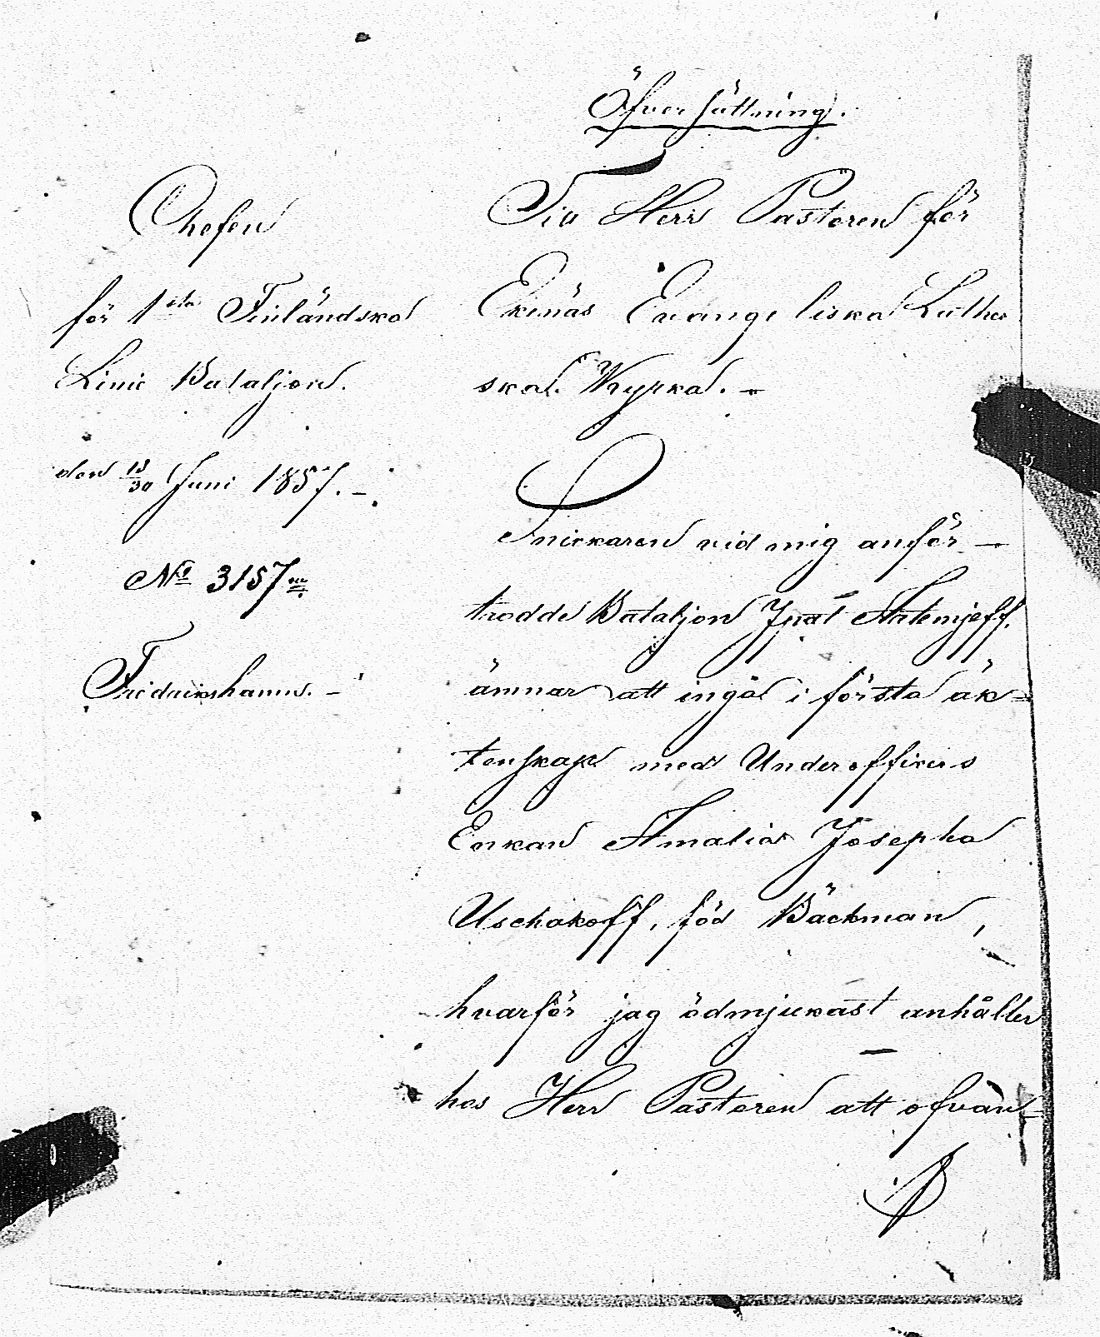 Öfversättning.
Chefen
för 1sta Finländska
Linie Bataljon.
den 18/30 Juni 1857. –
No 3157.
Fredrikshamn. –
Till Herr Pastoren för
Ekenäs Evangeliska Luther
ska Kyrka. –
Snickaren vid mig anför–
trodde Bataljon Ipat Artemjeff.
ämnar att ingå i första äk=
tenskap med Underofficers
Enkan Amalia Josepha
Uschakoff, född Bäckman,
hvarför jag ödmjukast anhåller
hos Herr Pastoren att ofvan=